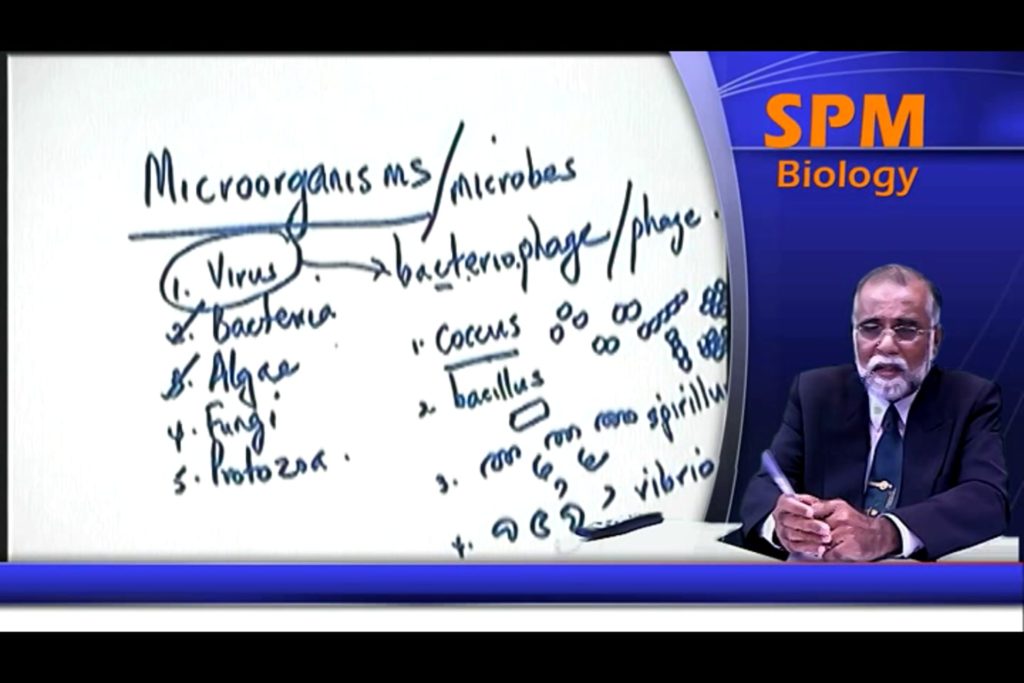 Microorganisms/microbes
1. Virus → bacteriophage/phage.
2. Bacteria
3. Algae
4. Fungi
5. Protozoa.
1. Coccus
2. bacillus
3. spirillu
4. vibrio
SPM
Biology